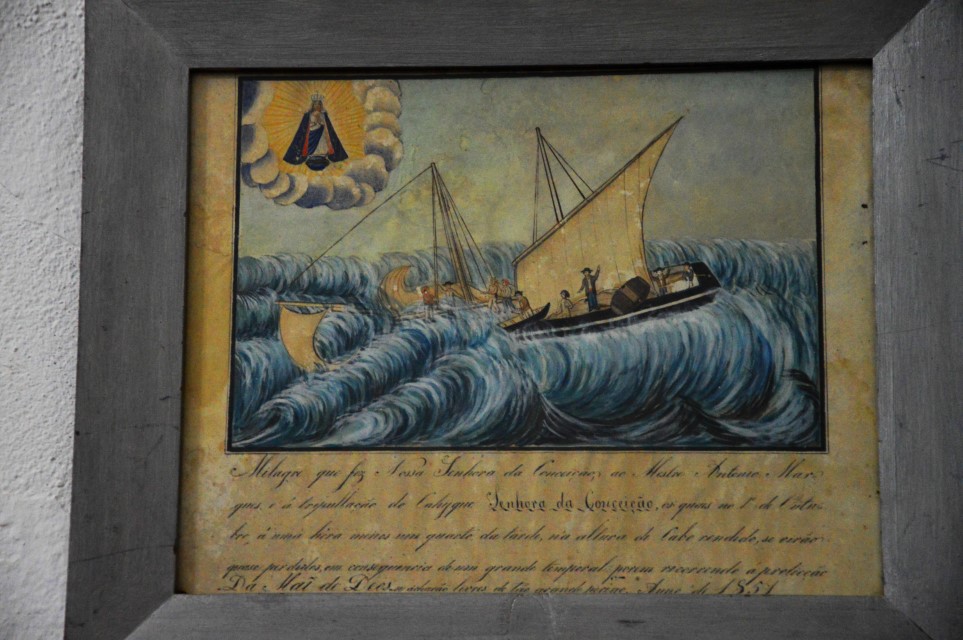 Milagre que fez Nossa Senhora da Conceição, ao Mestre Antonio Mar-
ques, e á tripullação do Cahyque Senhora da Conceição, os quaes no 1º de Outu-
bro, á uma hora menos um quarto da tarde, na altura do Cabo
quasi perdidos, em consequencia de um grande temporal; porem recorrendo a protecção
Da Maĩ de Deos, se acharão livres de tão grande perigo. Anno de 1851